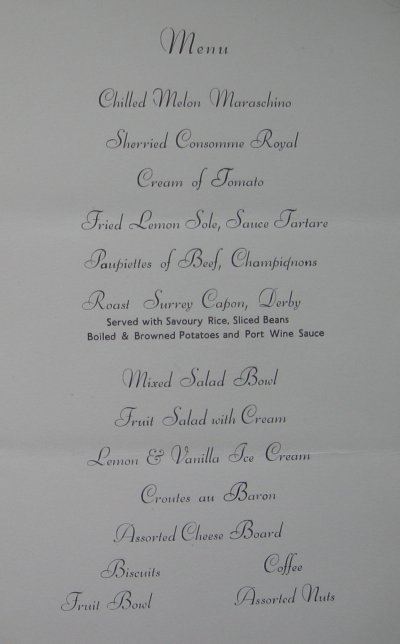 Menu
Chilled Melon Maraschino
Sherried Consomme Royal
Cream of Tomato
Fried Lemon Sole, Sauce Tartare
Paupiettes of Beef, Champignons
Roast Surrey Capon, Derby
Served with Savoury Rice, Sliced Beans
Boiled & Browned Potatoes and Port Wine Sauce
Mixed Salad Bowl
Fruit Salad with Cream
Lemon & Vanilla Ice Cream
Croutes au Baron
Assorted Cheese Board
Biscuits Coffee
Fruit Bowl Assorted Nuts